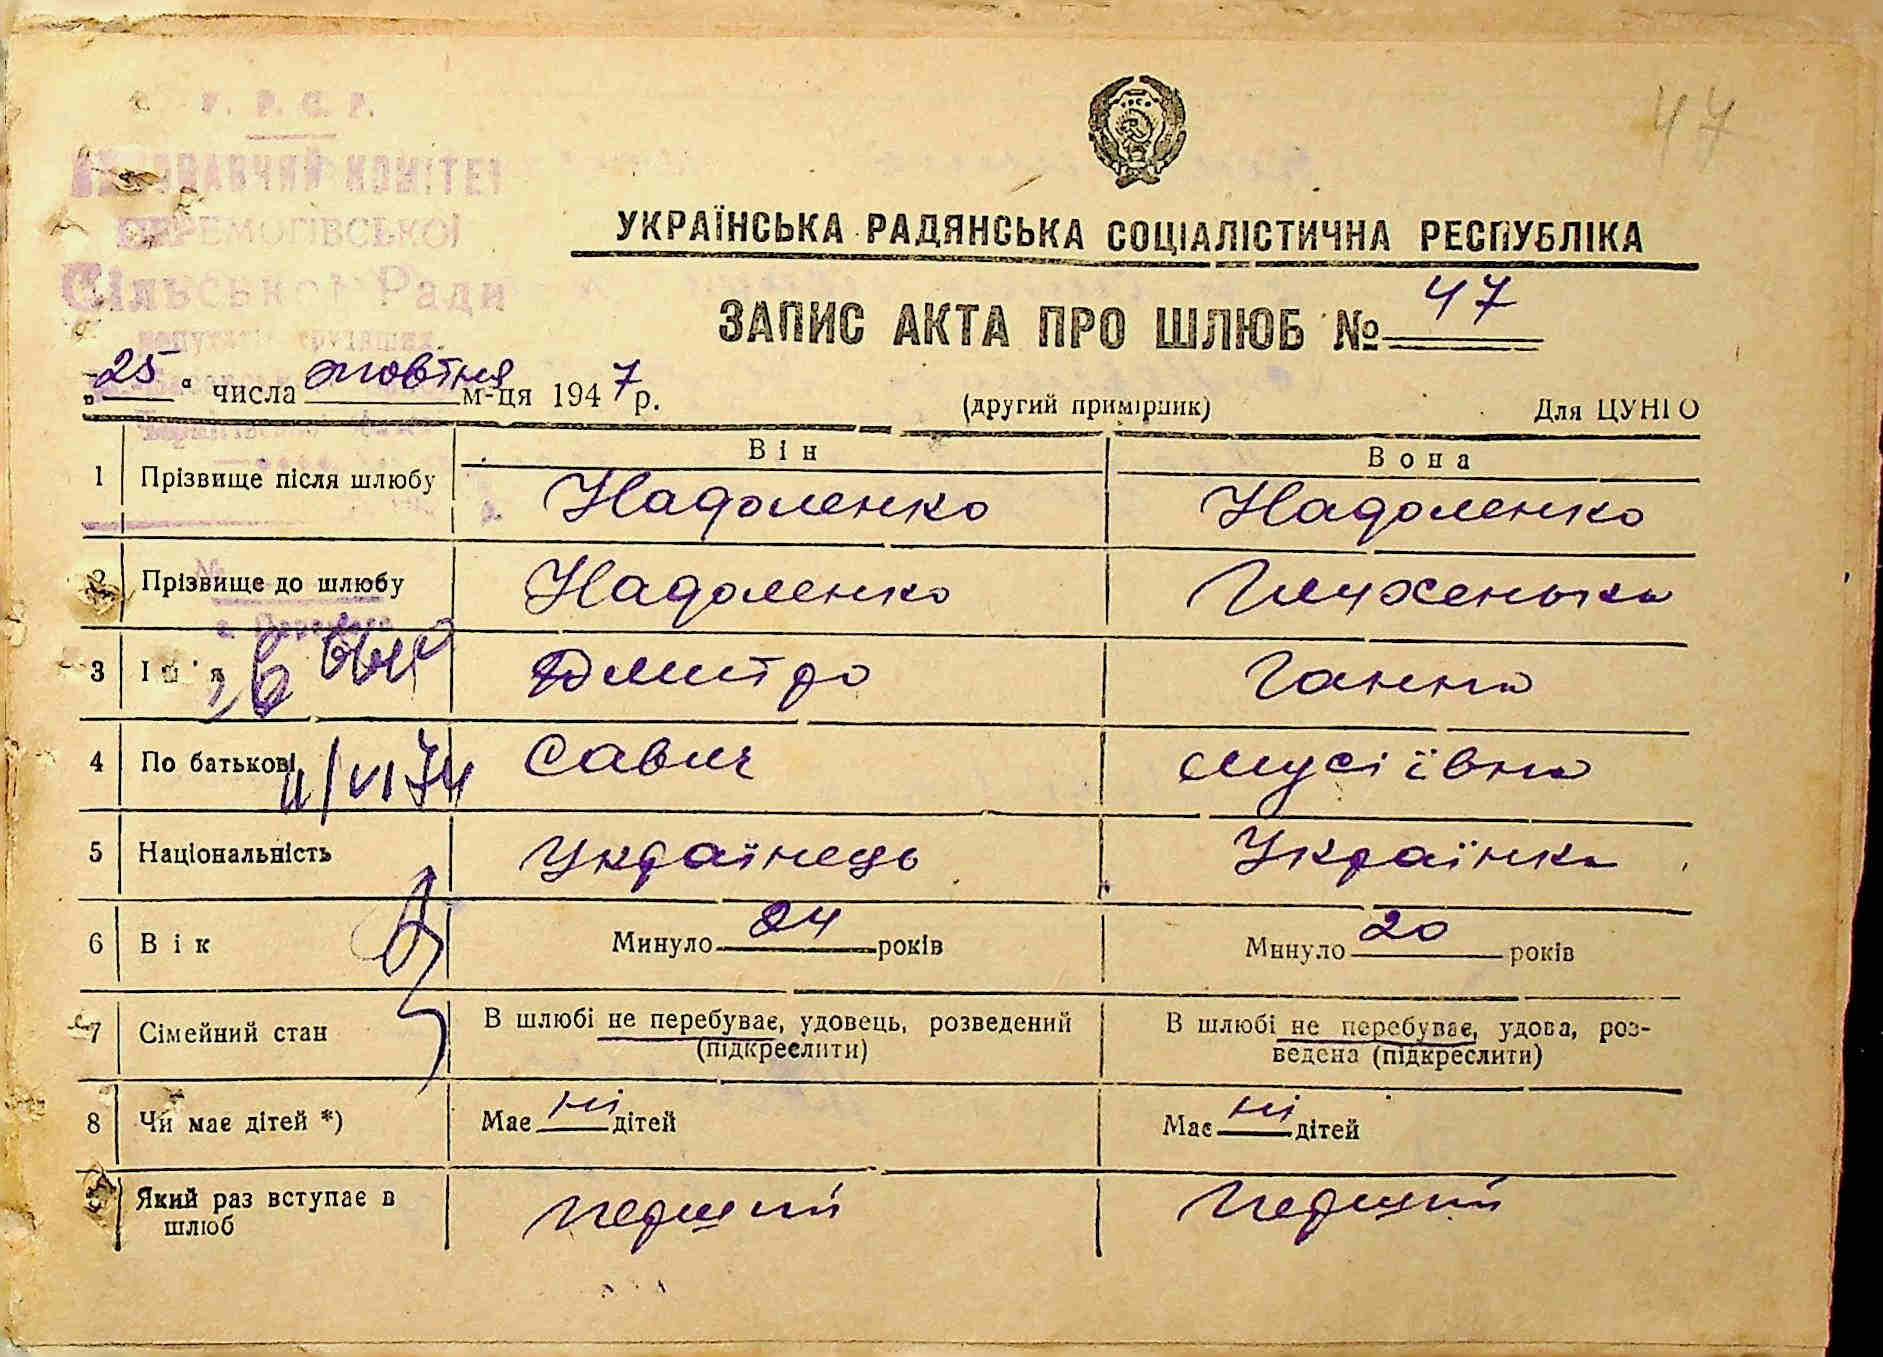 47
У. Р. С. Р.
ВИКОНАВЧИЙ КОМІТЕТ
ПЕРЕМОГІВСЬКОЇ
Сільської Ради
депутатів трудящих
УКРАЇНСЬКА РАДЯНСЬКА СОЦІАЛІСТИЧНА РЕСПУБЛІКА
ЗАПИС АКТА ПРО ШЛЮБ № 47
„25“ числа жовтня м-ця 1947 р.
(другий примірник) Для ЦУНГО
Він Вона
1 Прізвище після шлюбу Надоленко Надоленко
2 Прізвище до шлюбу Надоленко Глухенька
3 Ім'я Дмитро Ганна
4 По батькові Савич Мусіївна
11/VI 74
5 Національність Українець Українка
6 Вік Минуло 24 років Минуло 20 років
7 Сімейний стан В шлюбі не перебуває, удовець, розведений (підкреслити) В шлюбі не перебуває, удова, роз-
ведена (підкреслити)
8 Чи має дітей *) Має ні дітей Має ні дітей
9 Який раз вступає в шлюб перший перший